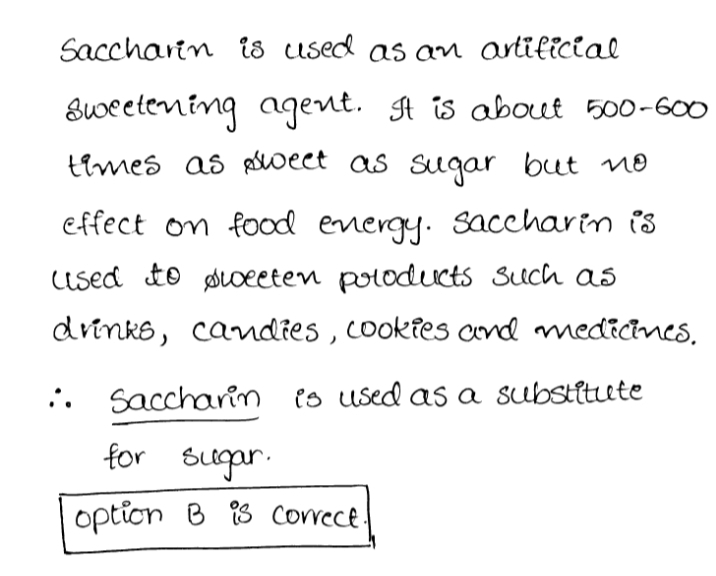 Saccharin is used as an artificial
sweetening agent. It is about 500-600
times as sweet as sugar but no
effect on food energy. Saccharin is
used to sweeten products such as
drinks, candies, cookies and medicines.
∴ Saccharin is used as a substitute
for sugar.
option B is correct.